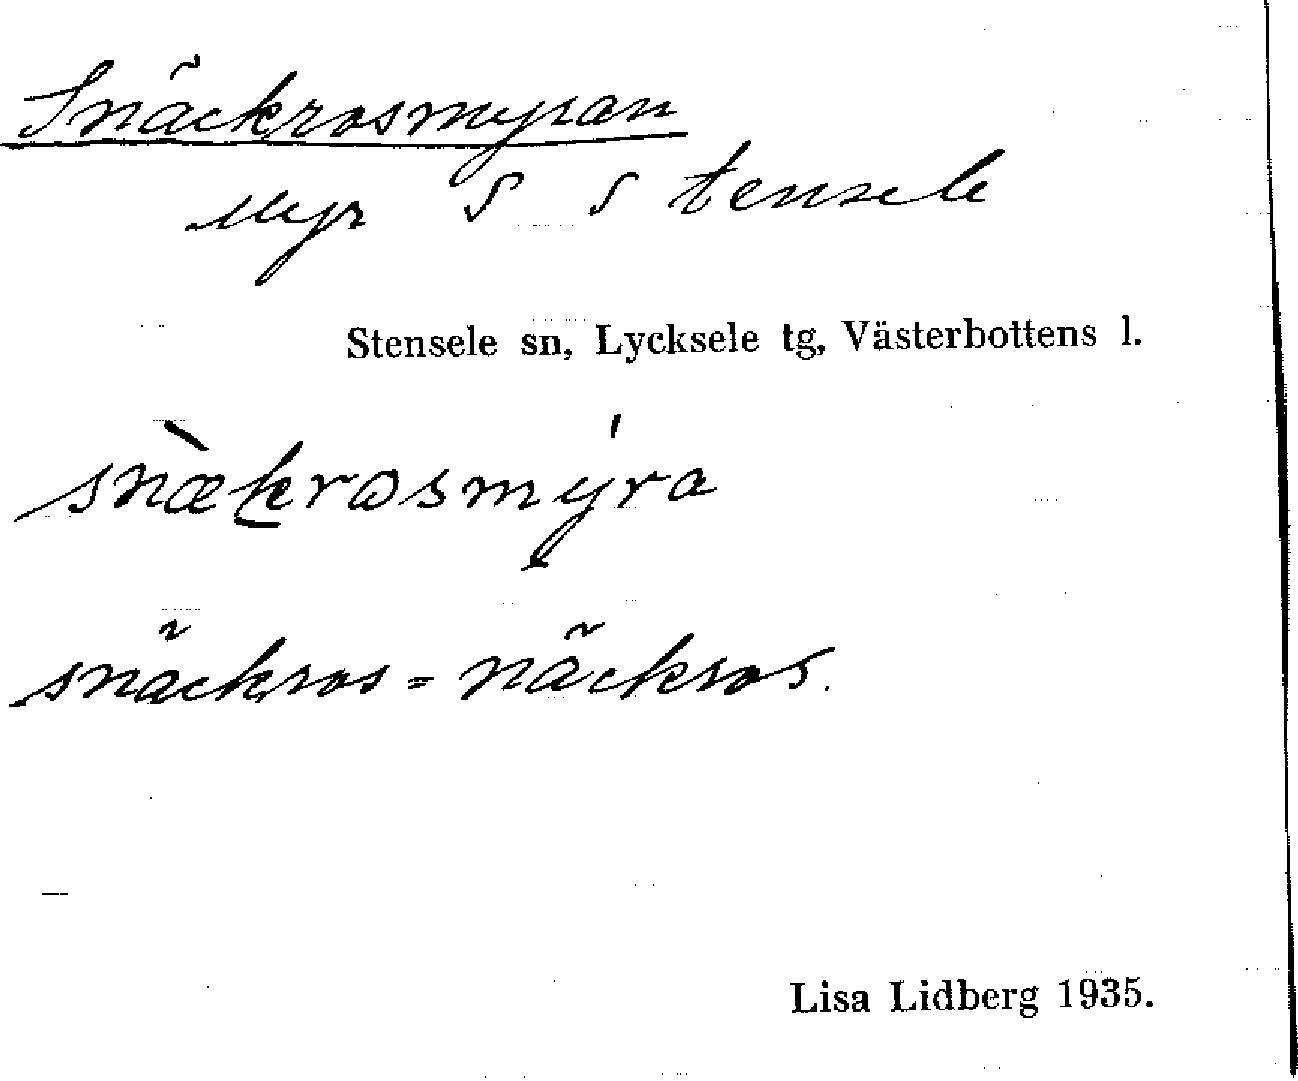 Snäckrosmyran
Myr S Stensele
Stensele sn, Lycksele tg, Västerbottens l.
snæ̀krosmýra
snäckros = näckros.
Lisa Lidberg 1935.